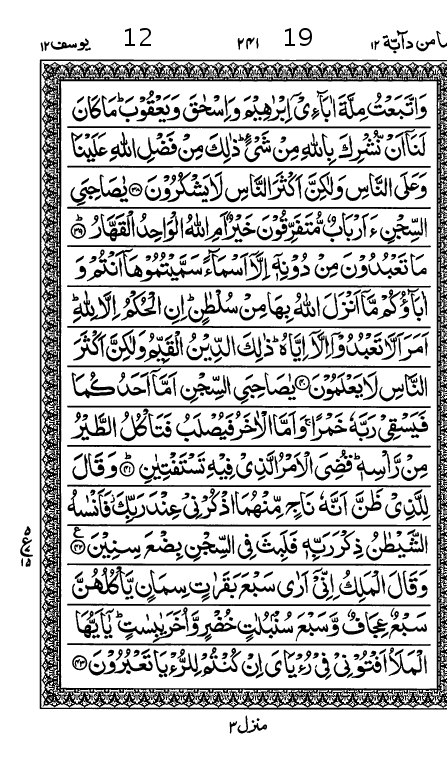 يوسف ١٢ 12 ٢٤١ 19 وما من دآبة ١٢
وَاتَّبَعْتُ مِلَّةَ اٰبَآءِیْۤ اِبْرٰهِیْمَ وَاِسْحٰقَ وَیَعْقُوْبَ ؕ مَا كَانَ
لَنَاۤ اَنْ نُّشْرِكَ بِاللّٰهِ مِنْ شَیْءٍ ؕ ذٰلِكَ مِنْ فَضْلِ اللّٰهِ عَلَیْنَا
وَعَلَی النَّاسِ وَلٰكِنَّ اَكْثَرَ النَّاسِ لَا یَشْكُرُوْنَ ﴿۳۸﴾ یٰصَاحِبَیِ
السِّجْنِ ءَاَرْبَابٌ مُّتَفَرِّقُوْنَ خَیْرٌ اَمِ اللّٰهُ الْوَاحِدُ الْقَهَّارُ ؕ ﴿۳۹﴾
مَا تَعْبُدُوْنَ مِنْ دُوْنِهٖۤ اِلَّاۤ اَسْمَآءً سَمَّیْتُمُوْهَاۤ اَنْتُمْ وَ
اٰبَآؤُكُمْ مَّاۤ اَنْزَلَ اللّٰهُ بِهَا مِنْ سُلْطٰنٍ ؕ اِنِ الْحُكْمُ اِلَّا لِلّٰهِ ؕ
اَمَرَ اَلَّا تَعْبُدُوْۤا اِلَّاۤ اِیَّاهُ ؕ ذٰلِكَ الدِّیْنُ الْقَیِّمُ وَلٰكِنَّ اَكْثَرَ
النَّاسِ لَا یَعْلَمُوْنَ ﴿۴۰﴾ یٰصَاحِبَیِ السِّجْنِ اَمَّاۤ اَحَدُكُمَا
فَیَسْقِیْ رَبَّهٗ خَمْرًا ۚ وَاَمَّا الْاٰخَرُ فَیُصْلَبُ فَتَاْكُلُ الطَّیْرُ
مِنْ رَّاْسِهٖ ؕ قُضِیَ الْاَمْرُ الَّذِیْ فِیْهِ تَسْتَفْتِیٰنِ ؕ ﴿۴۱﴾ وَقَالَ
لِلَّذِیْ ظَنَّ اَنَّهٗ نَاجٍ مِّنْهُمَا اذْكُرْنِیْ عِنْدَ رَبِّكَ ؗ فَاَنْسٰىهُ
الشَّیْطٰنُ ذِكْرَ رَبِّهٖ فَلَبِثَ فِی السِّجْنِ بِضْعَ سِنِیْنَ ؕ ﴿۴۲﴾ ع
وَقَالَ الْمَلِكُ اِنِّیْۤ اَرٰی سَبْعَ بَقَرٰتٍ سِمَانٍ یَّاْكُلُهُنَّ
سَبْعٌ عِجَافٌ وَّسَبْعَ سُنْۢبُلٰتٍ خُضْرٍ وَّاُخَرَ یٰبِسٰتٍ ؕ یٰۤاَیُّهَا
الْمَلَاُ اَفْتُوْنِیْ فِیْ رُءْیَایَ اِنْ كُنْتُمْ لِلرُّءْیَا تَعْبُرُوْنَ ﴿۴۳﴾
۵ ع ۱۵
منزل ۳